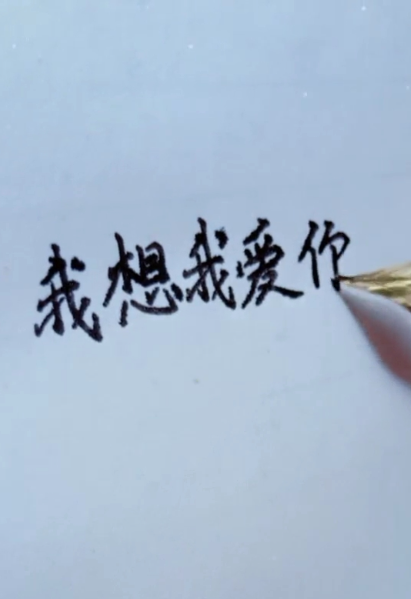 我想我爱你